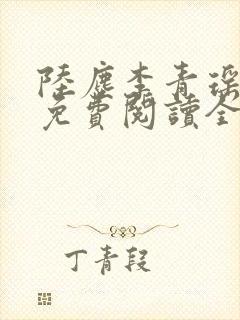 陸塵李青瑤
免費閱讀全
丁青段